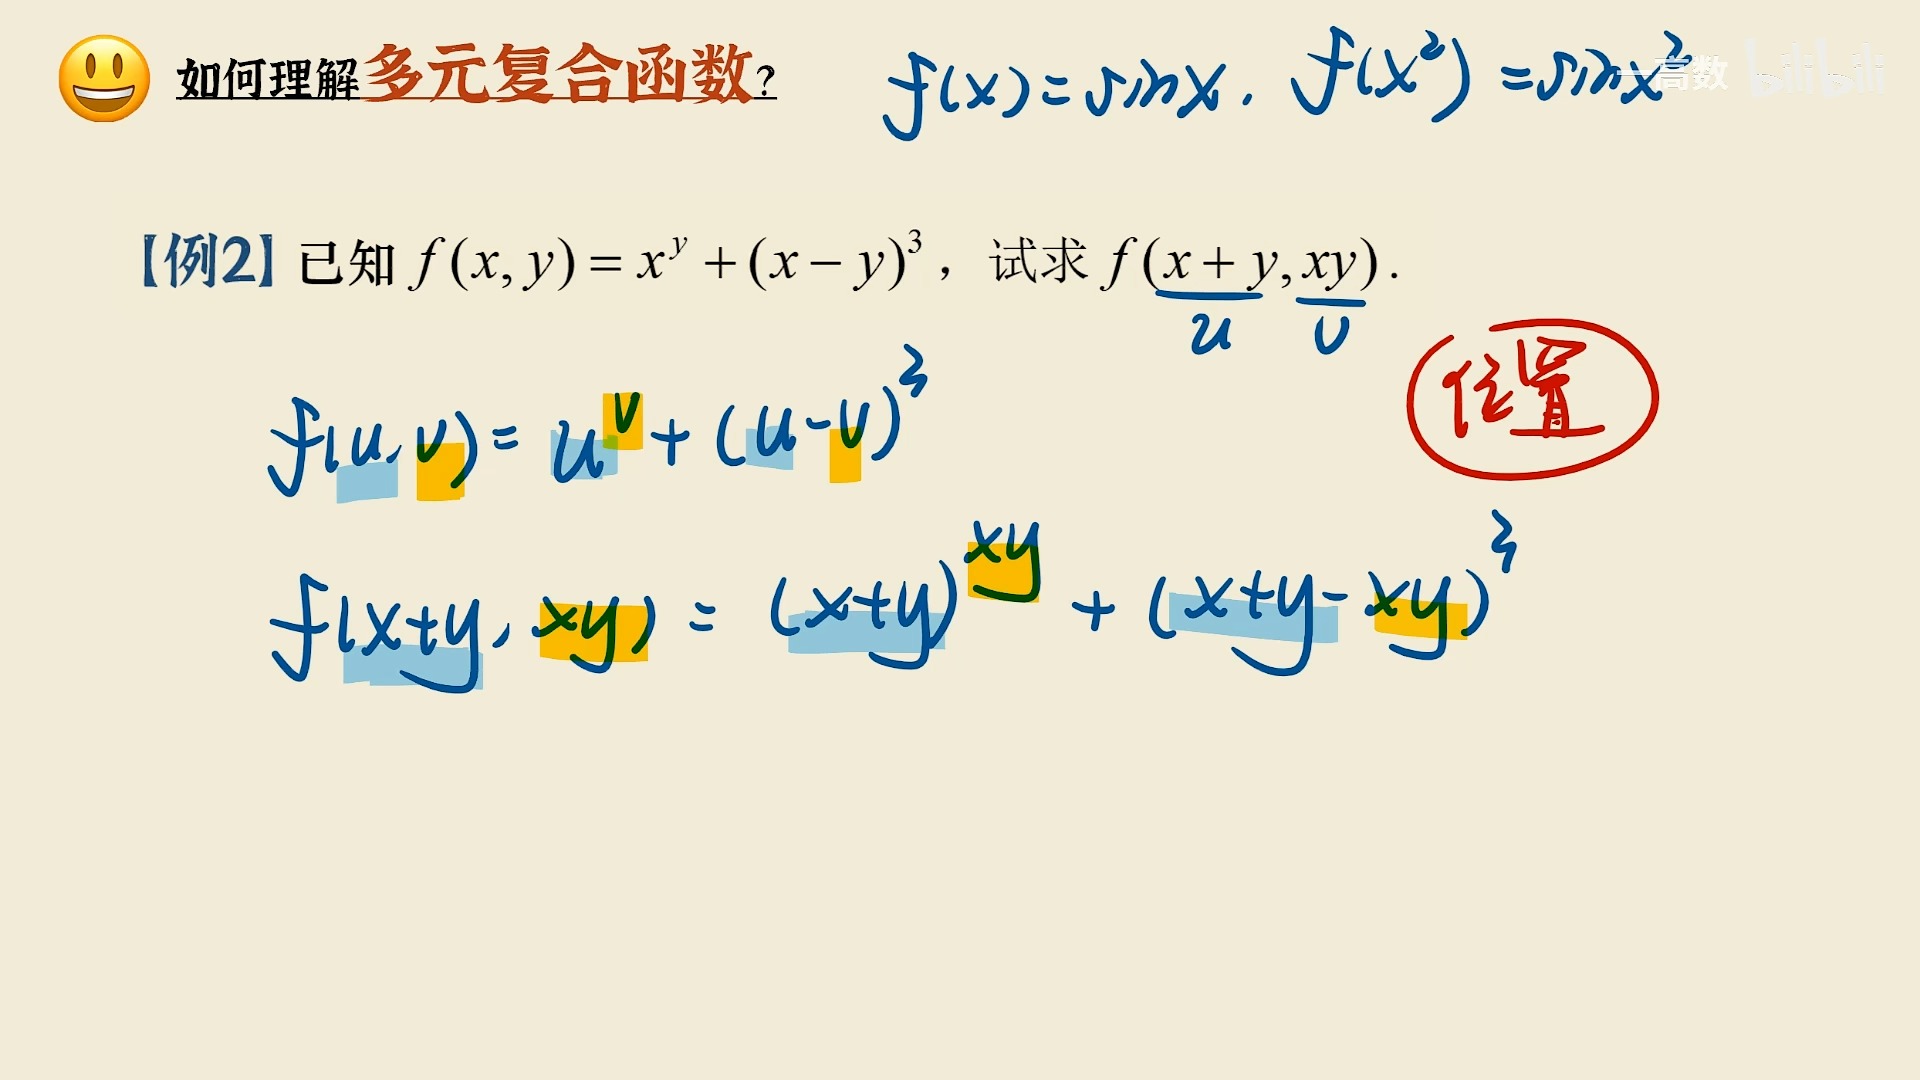 如何理解多元复合函数?
f(x)=sinx, f(x²)=sinx²
一高数 bilibili
【例2】已知 f(x, y) = x^y + (x − y)³，试求 f(x + y, xy).
u v
位置
f(u,v)= u^v + (u-v)³
f(x+y, xy) = (x+y)^xy + (x+y-xy)³